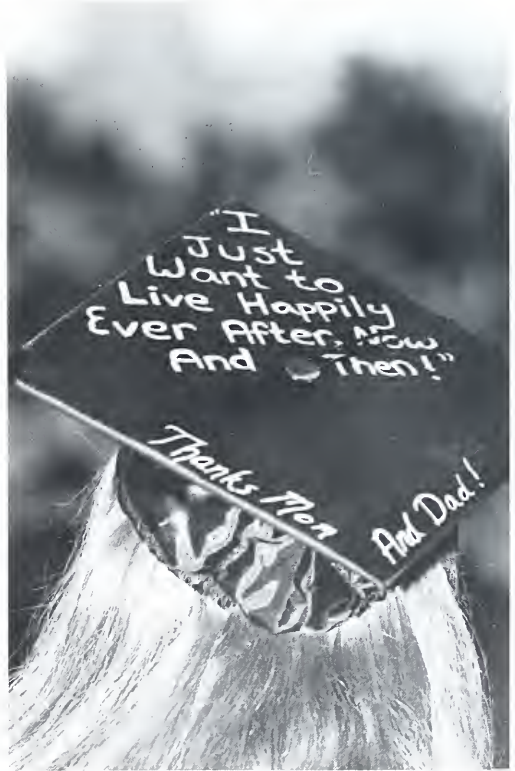 "I
Just
Want to
Live Happily
Ever After, Now
And Then!"
Thanks Mom
And Dad!